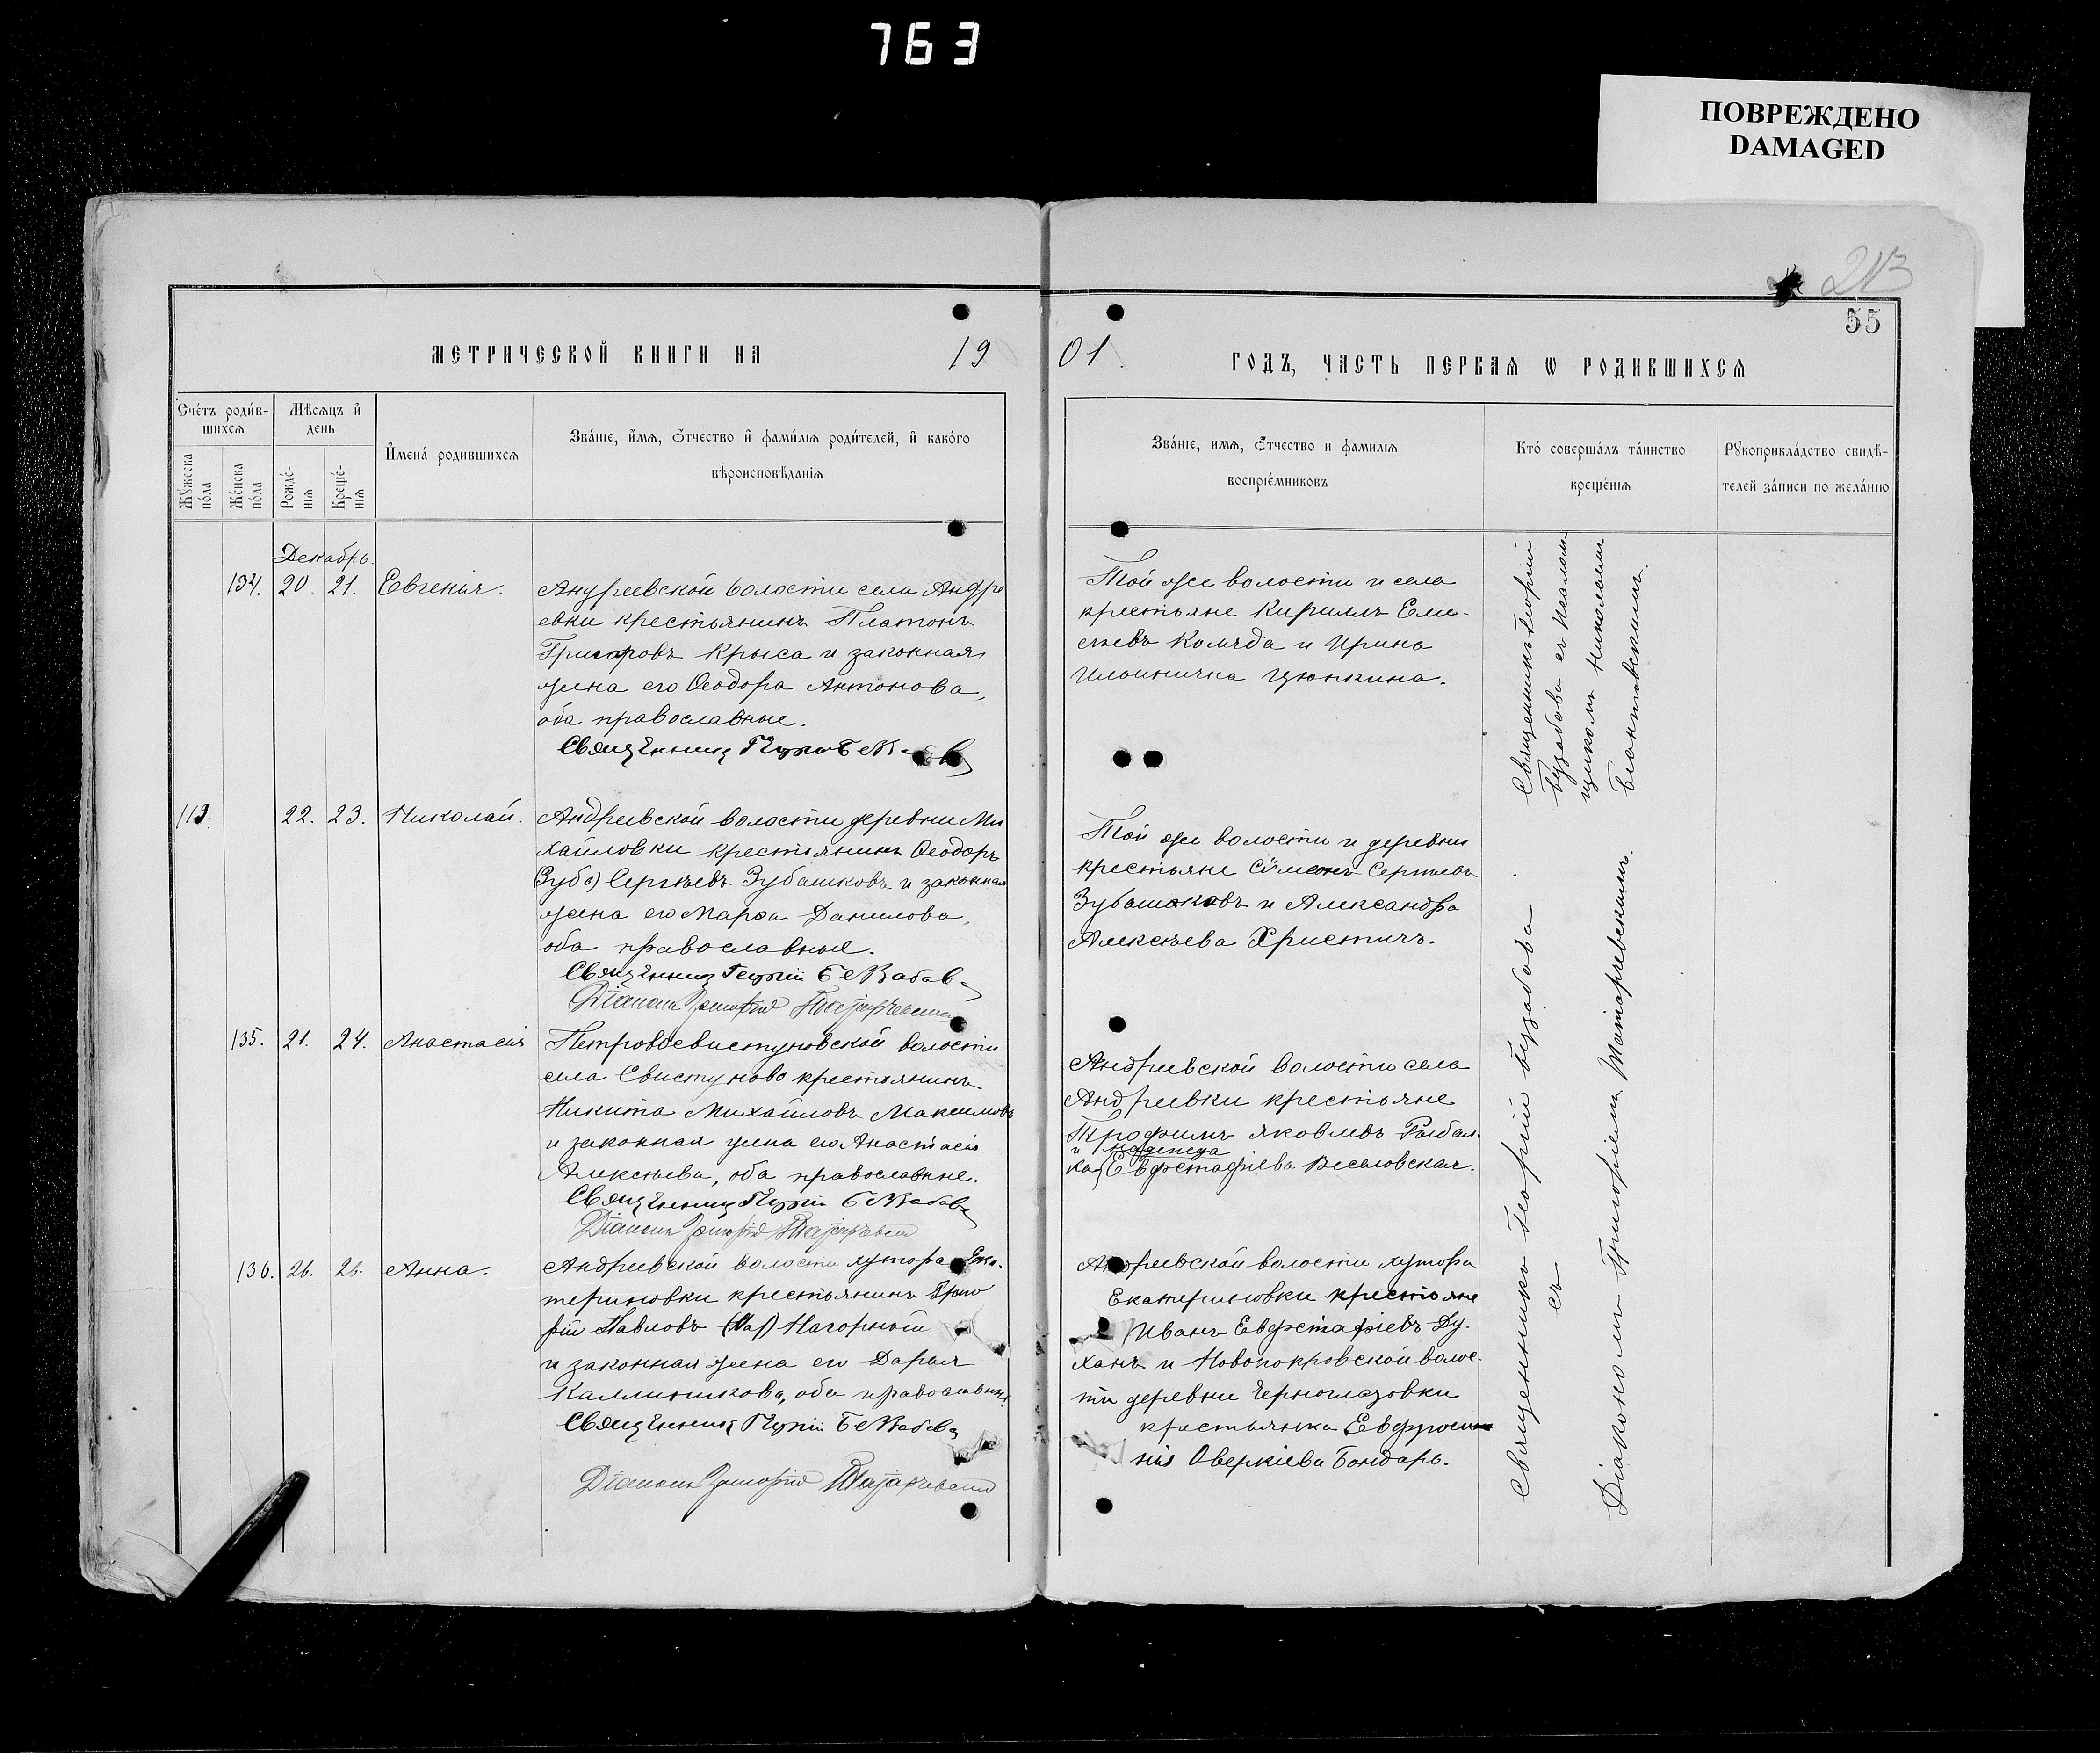 763
ПОВРЕЖДЕНО
DAMAGED
213
55
МЕТРИЧЕСКОЙ КНИГИ НА 19
01 ГОДЪ, ЧАСТЬ ПЕРВАЯ Ѡ РОДИВШИХСЯ
Счетъ родившихся
Мѣсяцъ и день
Имена родившихся
Званіе, имя, отчество и фамилія родителей, и какого
вѣроисповѣданія
Мужеска пола
Женска пола
Рожденія
Крещенія
Званіе, имя, отчество и фамилія
воспріемниковъ
Кто совершалъ таинство
крещенія
Рукоприкладство свидѣ-
телей записи по желанію
Декабрь.
134. 20. 21. Евгенія.
Андреевской волости села Андре
евки крестьянинъ Платонъ
Григоровъ Крыса и законная
жена его Ѳеодора Антонова,
оба православные.
Священникъ
Той же волости и села
крестьяне Кириллъ Ели-
сѣевъ Коляда и Ирина
Ильинична Цюпкина.
Священникъ Георгій
Безабава съ псалом
щикомъ Николаемъ
113. 22. 23. Николай.
Андреевской волости деревни Ми
хайловки крестьянинъ Ѳеодоръ
(Зуба) Сергѣевъ Зубашковъ и законная
жена его Марѳа Данилова,
оба православные.
Священникъ Георгій Безабава
Діаконъ Григорій
Той же волости и деревни
крестьяне Симеонъ Сергѣевъ
Зубашковъ и Александра
Алексѣева Христичъ.
135. 21. 24. Анастасія
Петровосвистуновской волости
села Свистуново крестьянинъ
Никита Михайловъ Максимовъ
и законная жена его Анастасія
Алексѣева, оба православные.
Священникъ Георгій Безабава
Діаконъ Григорій
Андреевской волости села
Андреевки крестьяне
Трофимъ Яковлевъ Рыбал-
и Надежда
ка Евфстафіева Весаловская.
136. 26. 26. Анна.
Андреевской волости хутора Ека-
териновки крестьянинъ
Павловъ Нагорный
и законная жена его Дарья
Каллиникова, оба православные
Священникъ Георгій Безабава
Діаконъ Григорій
Андреевской волости хутора
Екатериновки крестьяне
Иванъ Евфстафіевъ Ду-
ханъ и Новопокровской волос-
ти деревни Черноглазовки
крестьянка Евфроси
нія Оверкіева Бондарь.
Священникъ Георгій Безабава
съ
Діакономъ Григоріемъ